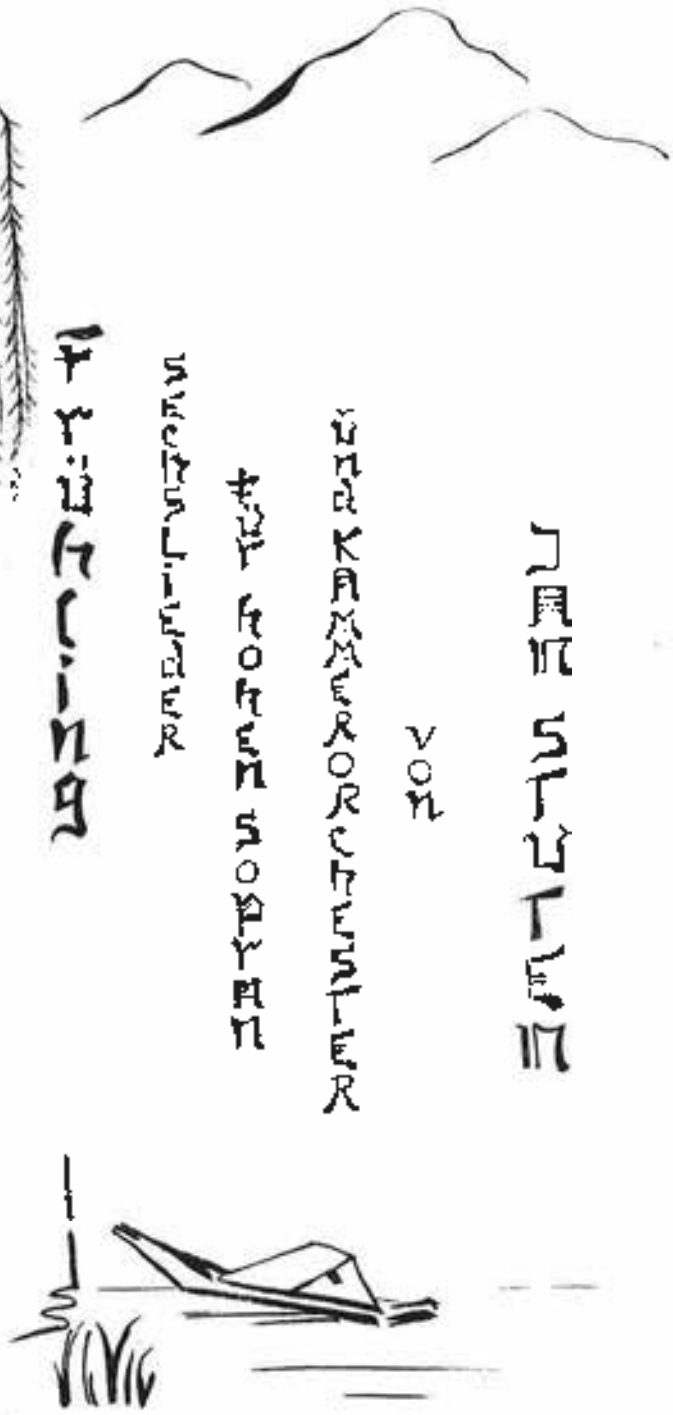 Frühling
SECHS LIEdER
für hohen sopran
ünd KAMMERORCHESTER
von
JAN STÜTEN